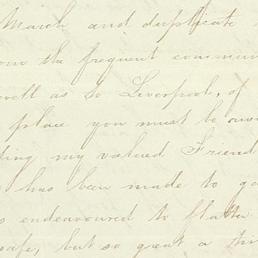 March and duplicate
the frequent commun
well as to Liverpool, of
place you must be awa
ting my valued Friend
has been made to go
endeavoured to flatte
safe, but so great a thi